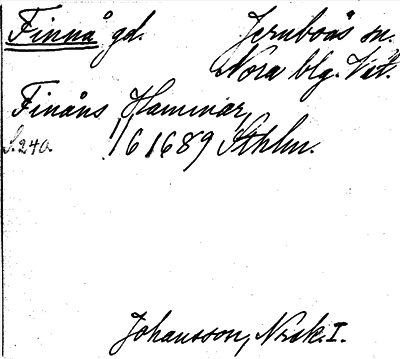 Finnå gd. Jernboås sn.
Nora blg. Vstm.
Finåns Hammar,
S.240. 1/6 1689 Sthlm.
Johansson, Norsk. I.